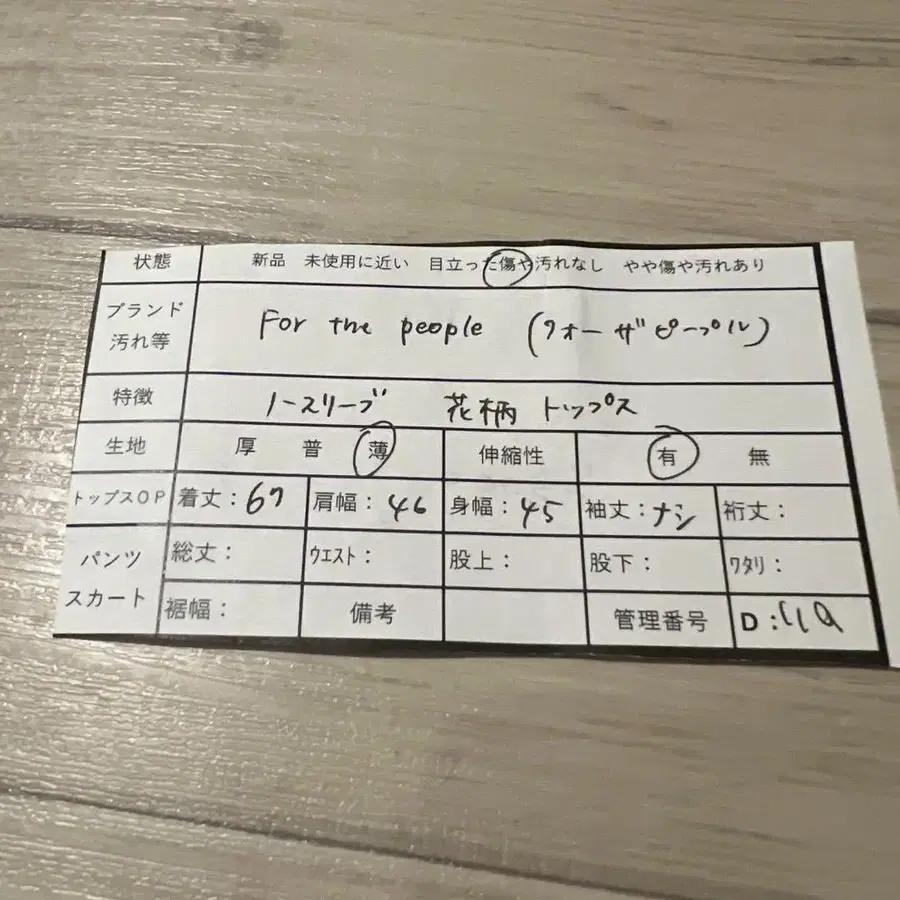 状態 新品 未使用に近い 目立った傷や汚れなし やや傷や汚れあり
ブランド 汚れ等 For the people (フォーザピープル)
特徴 ノースリーブ 花柄 トップス
生地 厚 普 薄 伸縮性 有 無
トップスOP 着丈:67 肩幅:46 身幅:45 袖丈:ナシ 裄丈:
パンツ スカート 総丈: ウエスト: 股上: 股下: ワタリ:
裾幅: 備考 管理番号 D: